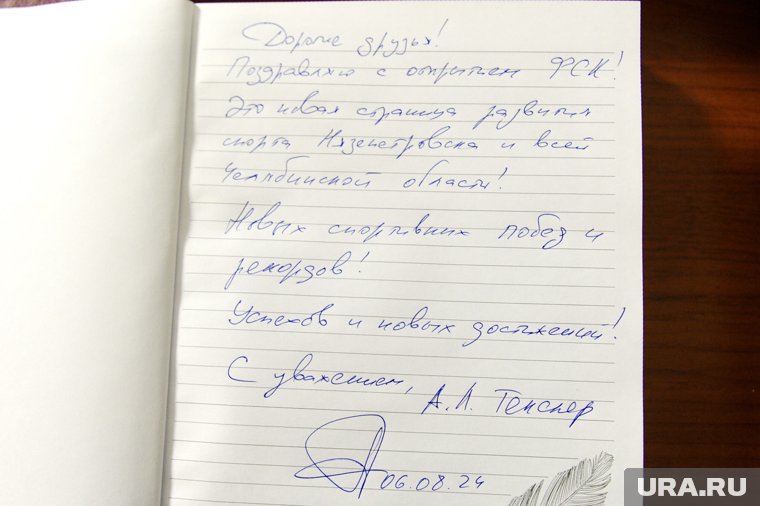 Дорогие друзья!
Поздравляю с открытием ФСК!
Это новая страница развития
спорта Нязепетровска и всей
Челябинской области!
Новых спортивных побед и
рекордов!
Успехов и новых достижений!
С уважением,
А.Л. Текслер
06.08.24
URA.RU